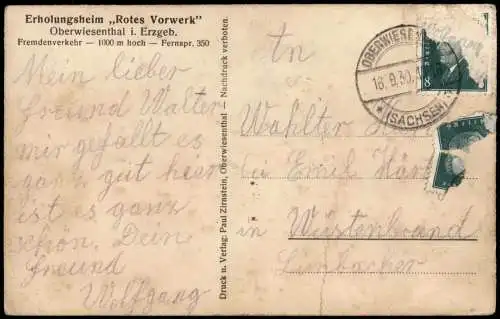 Erholungsheim „Rotes Vorwerk"
Oberwiesenthal i. Erzgeb.
Fremdenverkehr — 1000 m hoch — Fernspr. 350
Mein lieber
Freund Walter
mir gefällt es
ganz gut hier
ist es ganz
schön. Dein
Freund
Wolfgang
Druck u. Verlag: Paul Zirnstein, Oberwiesenthal — Nachdruck verboten.
OBERWIESEN
(SACHSEN)
An
bei Emil
in Wüstenbrand
Limbacher